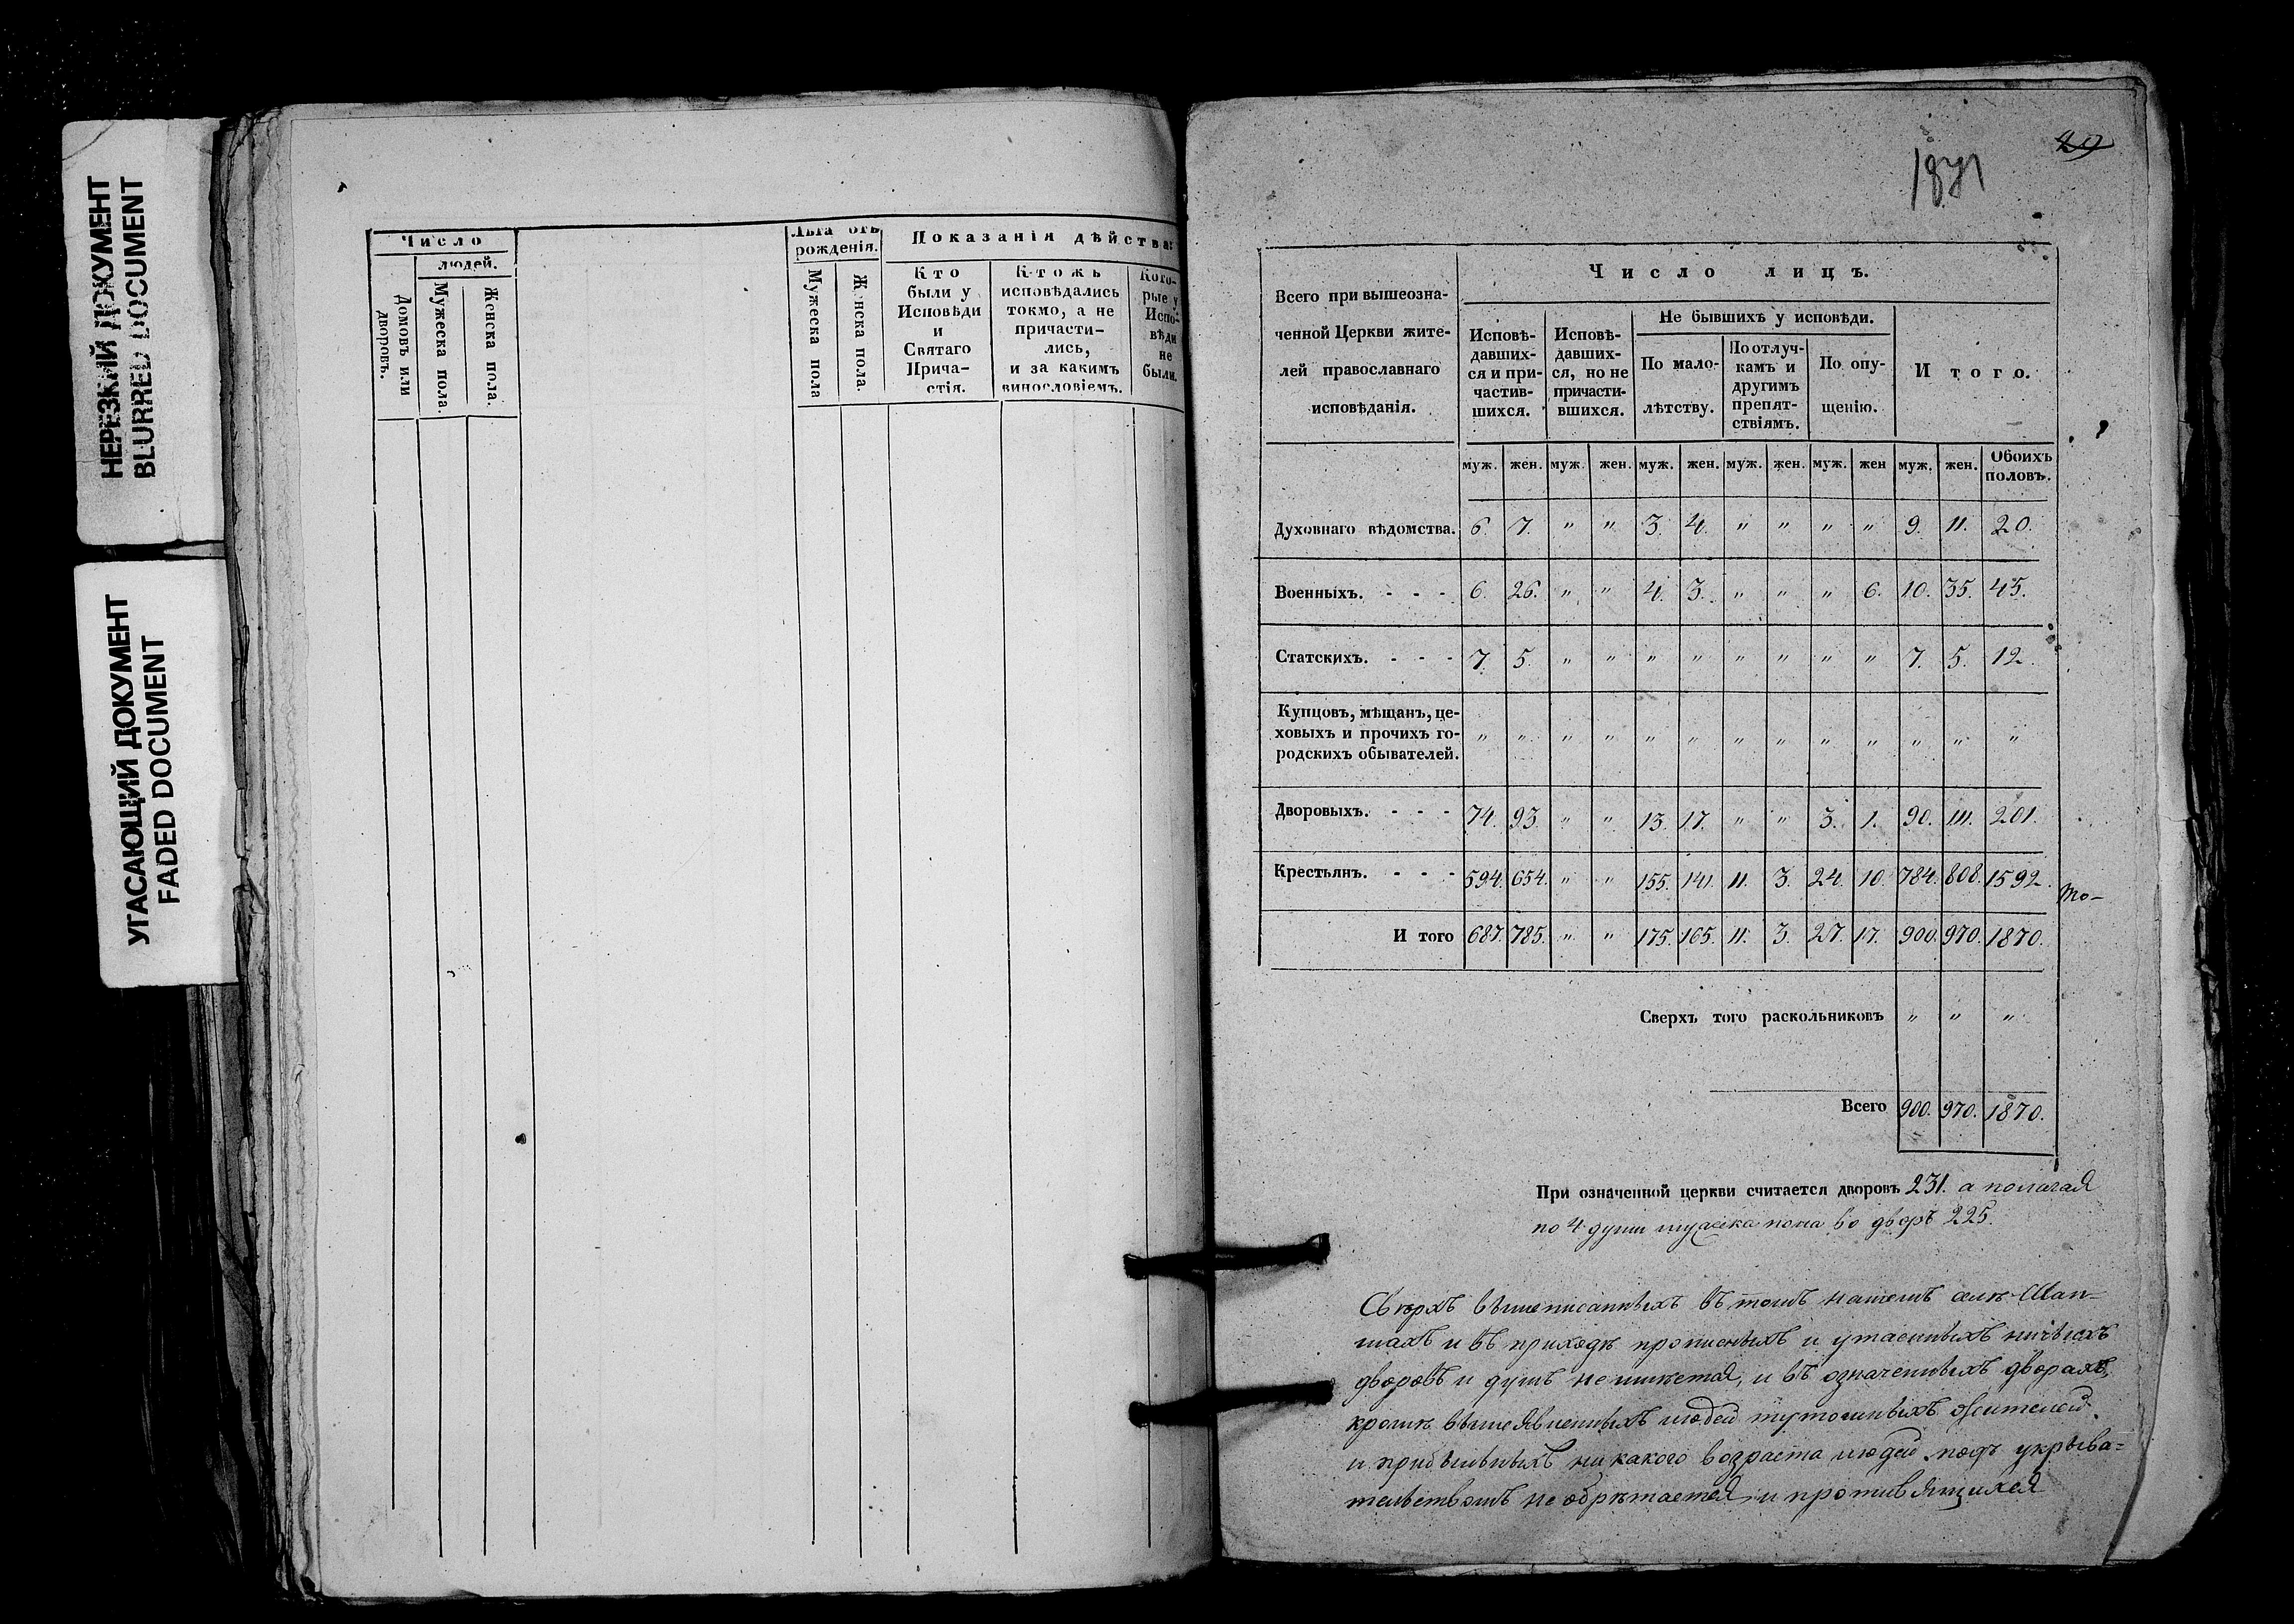 НЕРЕЗКИЙ ДОКУМЕНТ
BLURRED DOCUMENT
УГАСАЮЩИЙ ДОКУМЕНТ
FADED DOCUMENT
Число
людей.
Домовъ или дворовъ.
Мужеска пола.
Женска пола.
Лѣта отъ
рожденія.
Мужеска пола
Женска пола.
Показанія дѣйства:
Кто
были у
Исповѣди
и
Святаго
Прича-
стія.
Ктожъ
исповѣдались
токмо, а не
причасти-
лись,
и за какимъ
винословіемъ.
Кото-
рые у
Испо-
вѣди
не
были.
29
Всего при вышеозна-
ченной Церкви жите-
лей православнаго
исповѣданія.
Число лицъ.
Исповѣ-
давших-
ся и при-
частив-
шихся.
Исповѣ-
давших-
ся, но не
причасти-
вшихся.
Не бывшихъ у исповѣди.
По мало-
лѣтству.
По отлуч-
камъ и
другимъ
препят-
ствіямъ.
По опу-
щенію.
И того.
муж. жен. муж. жен. муж. жен. муж. жен. муж. жен муж. жен. Обоихъ
половъ.
Духовнаго вѣдомства. 6. 7. " " 3. 4. " " " " 9. 11. 20.
Военныхъ. - - - 6. 26. " " 4. 3. " " " 6. 10. 35. 45.
Статскихъ. - - - 7. 5. " " " " " " " " 7. 5. 12.
Купцовъ, мѣщанъ, це-
ховыхъ и прочихъ го-
родскихъ обывателей. " " " " " " " " " " " " "
Дворовыхъ. - - - 74. 93. " " 13. 17. " " 3. 1. 90. 111. 201.
Крестьянъ. - - - 594. 654. " " 155. 141. 11. 3. 24. 10. 784. 808. 1592.
То-
И того 687. 785. " " 175. 165. 11. 3. 27. 17. 900. 970. 1870.
Сверхъ того раскольниковъ " " "
Всего 900. 970. 1870.
При означенной церкви считается дворовъ 231. а полагая
по 4 души мужска пола во дворъ 225.
Сверхъ вышеписанныхъ въ томъ нашемъ селѣ Шап-
шахъ и въ приходѣ прописныхъ и утаенныхъ ничьихъ
дворовъ и душъ неимѣется, и въ означенныхъ дворахъ,
кромѣ вышеявленныхъ людей тутошныхъ жителей
и прибылныхъ никакого возраста людей подъ укрыва=
тельствомъ необрѣтается и противящихся